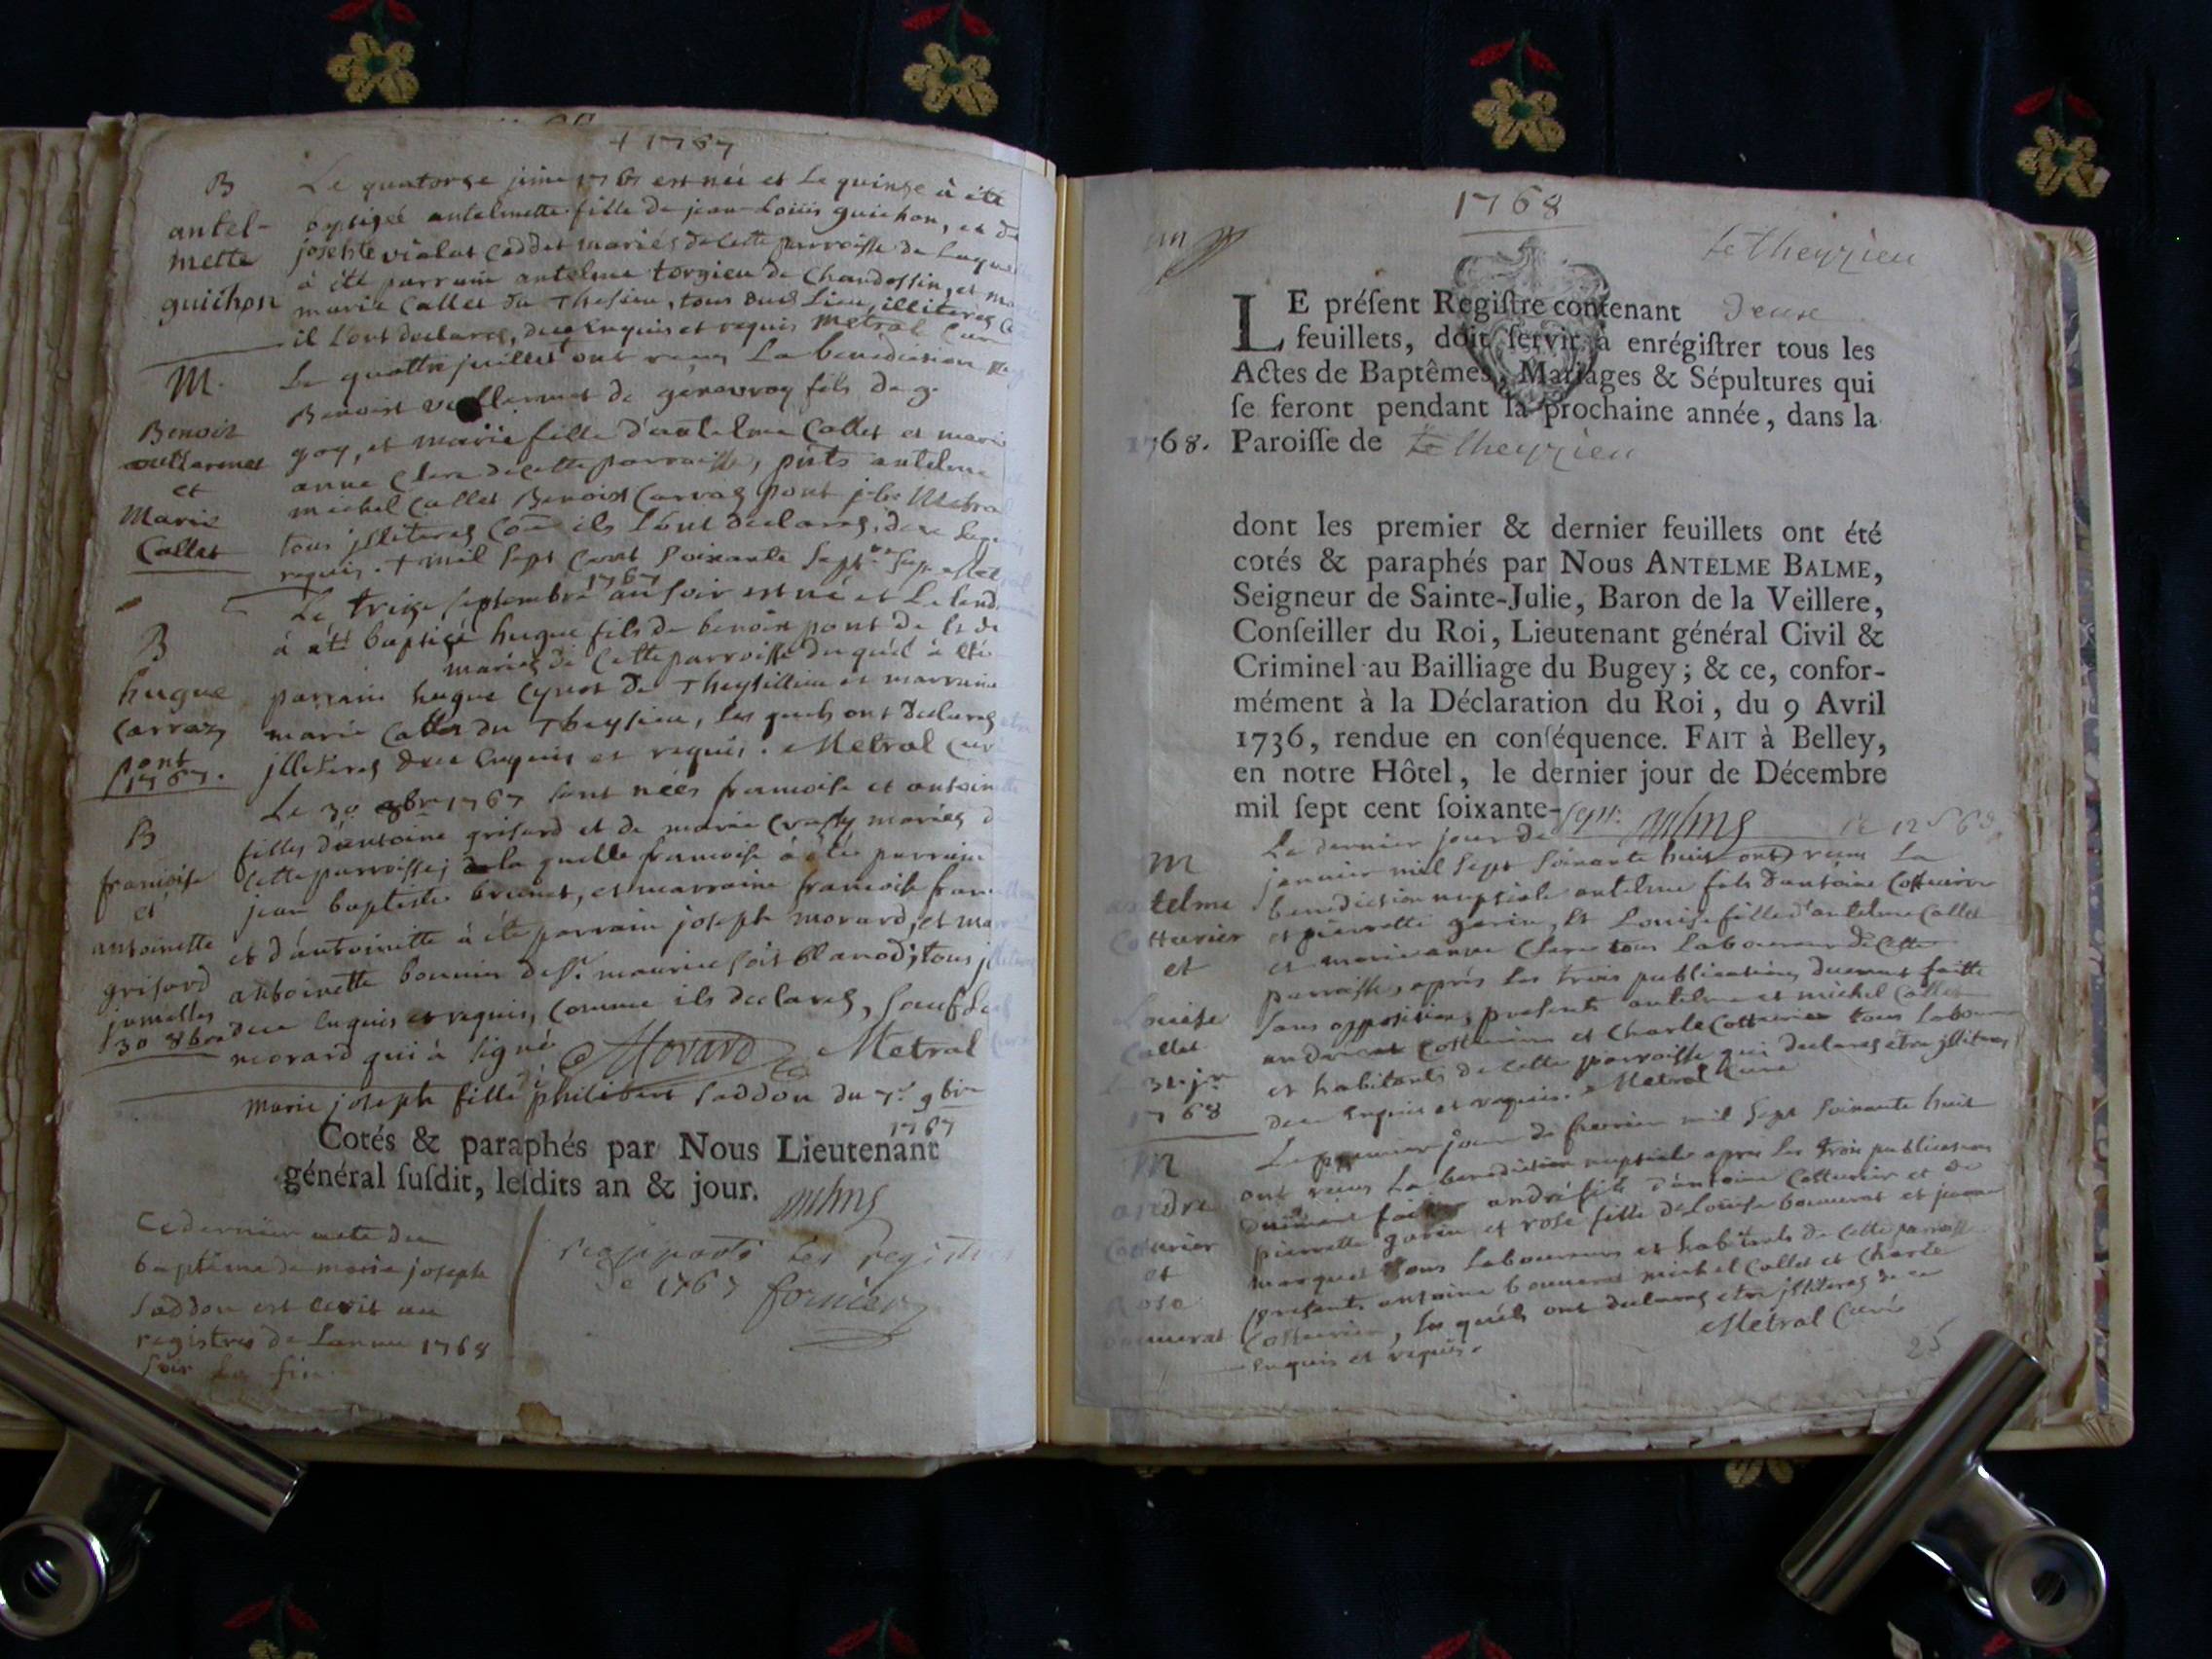 + 1767
B
antel-
mette
guichon
Le quatorze juin 1767 est née et Le quinze à été
baptizée antelmette fille de jean Loüis guichon, et de
josephte violat Caddet mariés de cette parroisse de Laquelle
à été parrain antelme torgieu de Chandossin, et
marie Callet du Thesieu, tous dud Lieu, illiteres
il L'ont declares, duee Enquis et requis Metral Curé
M.
Benoit
vuillermet
et
Marie
Callet
Le quattre juillet ont reçus La benediction
Benoist vuillermet de genevroy fils de g.
goy, et marie fille d'antelme Callet et marie
anne Clere de cette parroisse, pnts antelme
michel Callet Benoist Carraz pont Metral
tous jlliteres Cõe ils L'ont declares, duee
requis. + mil sept Cent soixante sept
B
hugue
Carraz
pont
1767.
Le treize septembre 1767 au soir est né et Le lend.
à été baptizé hugue fils de benoist pont de et de
mariés de Cette parroisse duquél à été
parrain hugue Cynot de Theysillieu et marraine
marie Callet du Theysieu, Les quels ont declares
jlliteres duee Enquis et requis. Metral Curé
B
francoise
et
antoinette
grisard
jumelles
30 8bre
Le 30 8bre 1767 sont nées francoise et antoinette
filles d'antoine grisard et de marie mariés de
Cette parroisse; de la quelle francoise à été parrain
jean baptiste brunet, et marraine francoise
et d'antoinette à été parrain joseph morard, et
antoinette bonnier de St. maurice soit Blanod; tous jlliteres
duee Enquis et requis, Comme ils declares, sauf Led
morard qui à signé Morard Metral Curé
marie joseph fille de philibert saddou du 7e 9bre
1767
Cotés & paraphés par Nous Lieutenant
général ſuſdit, leſdits an & jour.
Ce dernier acte du
baptême de marie joseph
saddou est ecrit au
registres de Lannee 1768
soir La fin
raporté les registres
de 1767 fornier
1768
un
Le theyzieu
LE préſent Regiſtre contenant deux
feuillets, doit ſervir à enrégiſtrer tous les
Actes de Baptêmes, Mariages & Sépultures qui
ſe feront pendant la prochaine année, dans la
1768. Paroiſſe de Le theyzieu
dont les premier & dernier feuillets ont été
cotés & paraphés par Nous ANTELME BALME,
Seigneur de Sainte-Julie, Baron de la Veillere,
Conſeiller du Roi, Lieutenant général Civil &
Criminel au Bailliage du Bugey; & ce, confor-
mément à la Déclaration du Roi, du 9 Avril
1736, rendue en conſéquence. FAIT à Belley,
en notre Hôtel, le dernier jour de Décembre
mil ſept cent ſoixante-sept.
M
antelme
Cotturier
et
Louise
Callet
31 jr
1768
Le dernier jour de
janvier mil sept soixante huit ont reçus La
benediction nuptiale antelme fils d'antoine Cotturier
et pierrette gorin, et Louise fille d'antelme Callet
et marie anne Clere tous Laboureurs de Cette
parroisse, aprés Les trois publications duement faitte
sans opposition, presents antelme et michel Callet
andré et Cotturier et Charle Cotturier tous Laboureurs
et habitants de cette parroisse qui declares etre jlliteres
duee Enquis et requis. Metral Curé
M
andre
Cotturier
et
Rose
bonnerat
Le premier jour de fevrier mil sept soixante huit
ont reçus La benediction nuptiale apres Les trois publications
duëment faittes andré fils d'antoine Cotturier et de
pierrette gorin et rose fille de Louise bonnerat et jeanne
marquet tous Laboureurs et habitants de cette parroisse
presents antoine bonnerat michel Callet et Charle
Cotturier, Les quéls ont declares etre jlliteres de ce
Enquis et requis. Metral Curé
25